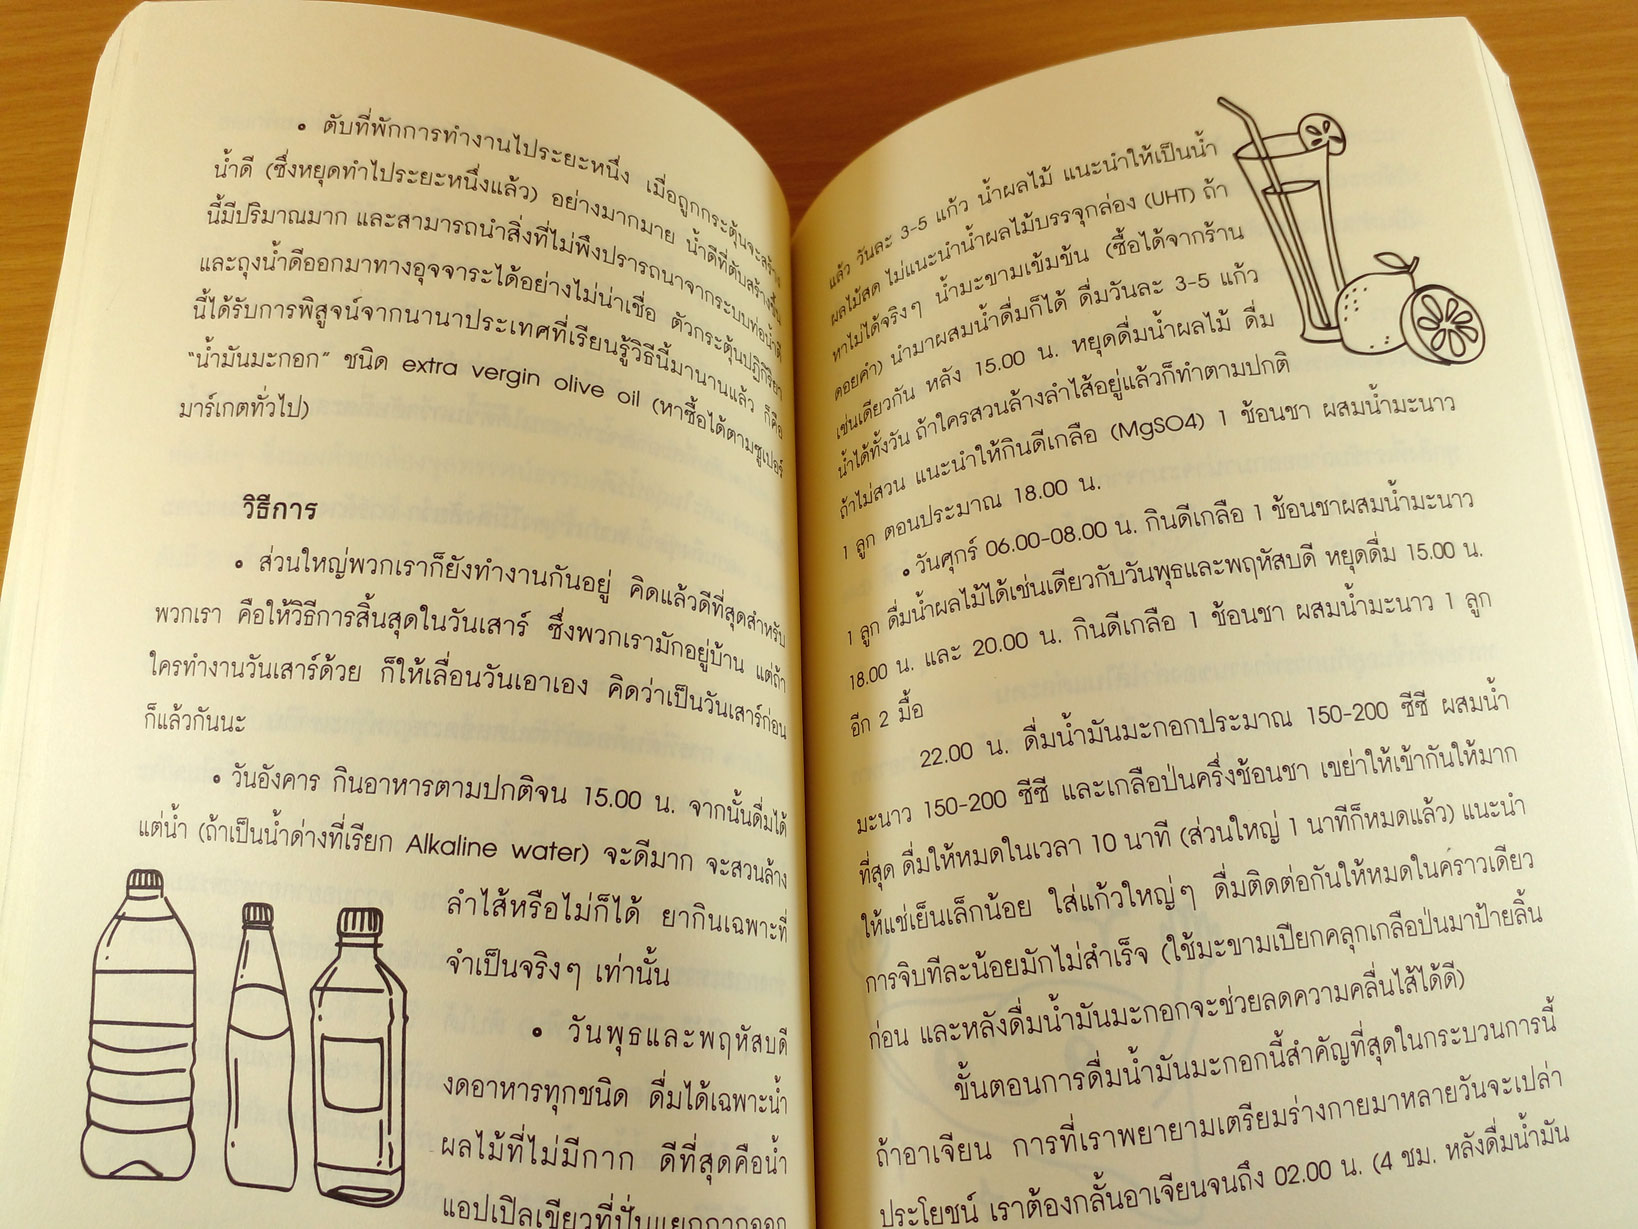 • ตับที่พักการทำงานไประยะหนึ่ง เมื่อถูกกระตุ้นจะสร้าง
น้ำดี (ซึ่งหยุดทำไประยะหนึ่งแล้ว) อย่างมากมาย น้ำดีที่ตับสร้างขึ้น
นี้มีปริมาณมาก และสามารถนำสิ่งที่ไม่พึงปรารถนาจากระบบท่อน้ำดี
และถุงน้ำดีออกมาทางอุจจาระได้อย่างไม่น่าเชื่อ ตัวกระตุ้นปฏิกิริยา
นี้ได้รับการพิสูจน์จากนานาประเทศที่เรียนรู้วิธีนี้มานานแล้ว ก็คือ
“น้ำมันมะกอก” ชนิด extra vergin olive oil (หาซื้อได้ตามซูเปอร์
มาร์เกตทั่วไป)
วิธีการ
• ส่วนใหญ่พวกเราก็ยังทำงานกันอยู่ คิดแล้วดีที่สุดสำหรับ
พวกเรา คือให้วิธีการสิ้นสุดในวันเสาร์ ซึ่งพวกเรามักอยู่บ้าน แต่ถ้า
ใครทำงานวันเสาร์ด้วย ก็ให้เลื่อนวันเอาเอง คิดว่าเป็นวันเสาร์ก่อน
ก็แล้วกันนะ
• วันอังคาร กินอาหารตามปกติจน 15.00 น. จากนั้นดื่มได้
แต่น้ำ (ถ้าเป็นน้ำด่างที่เรียก Alkaline water) จะดีมาก จะสวนล้าง
ลำไส้หรือไม่ก็ได้ ยากินเฉพาะที่
จำเป็นจริงๆ เท่านั้น
• วันพุธและพฤหัสบดี
งดอาหารทุกชนิด ดื่มได้เฉพาะน้ำ
ผลไม้ที่ไม่มีกาก ดีที่สุดคือน้ำ
แอปเปิลเขียวที่ปั่นแยกกากออก
แล้ว วันละ 3-5 แก้ว น้ำผลไม้ แนะนำให้เป็นน้ำ
ผลไม้สด ไม่แนะนำน้ำผลไม้บรรจุกล่อง (UHT) ถ้า
หาไม่ได้จริงๆ น้ำมะขามเข้มข้น (ซื้อได้จากร้าน
ดอยคำ) นำมาผสมน้ำดื่มก็ได้ ดื่มวันละ 3-5 แก้ว
เช่นเดียวกัน หลัง 15.00 น. หยุดดื่มน้ำผลไม้ ดื่ม
น้ำได้ทั้งวัน ถ้าใครสวนล้างลำไส้อยู่แล้วก็ทำตามปกติ
ถ้าไม่สวน แนะนำให้กินดีเกลือ (MgSO4) 1 ช้อนชา ผสมน้ำมะนาว
1 ลูก ตอนประมาณ 18.00 น.
• วันศุกร์ 06.00-08.00 น. กินดีเกลือ 1 ช้อนชาผสมน้ำมะนาว
1 ลูก ดื่มน้ำผลไม้ได้เช่นเดียวกับวันพุธและพฤหัสบดี หยุดดื่ม 15.00 น.
18.00 น. และ 20.00 น. กินดีเกลือ 1 ช้อนชา ผสมน้ำมะนาว 1 ลูก
อีก 2 มื้อ
22.00 น. ดื่มน้ำมันมะกอกประมาณ 150-200 ซีซี ผสมน้ำ
มะนาว 150-200 ซีซี และเกลือป่นครึ่งช้อนชา เขย่าให้เข้ากันให้มาก
ที่สุด ดื่มให้หมดในเวลา 10 นาที (ส่วนใหญ่ 1 นาทีก็หมดแล้ว) แนะนำ
ให้แช่เย็นเล็กน้อย ใส่แก้วใหญ่ๆ ดื่มติดต่อกันให้หมดในคราวเดียว
การจิบทีละน้อยมักไม่สำเร็จ (ใช้มะขามเปียกคลุกเกลือป่นมาป้ายลิ้น
ก่อน และหลังดื่มน้ำมันมะกอกจะช่วยลดความคลื่นไส้ได้ดี)
ขั้นตอนการดื่มน้ำมันมะกอกนี้สำคัญที่สุดในกระบวนการนี้
ถ้าอาเจียน การที่เราพยายามเตรียมร่างกายมาหลายวันจะเปล่า
ประโยชน์ เราต้องกลั้นอาเจียนจนถึง 02.00 น. (4 ชม. หลังดื่มน้ำมัน